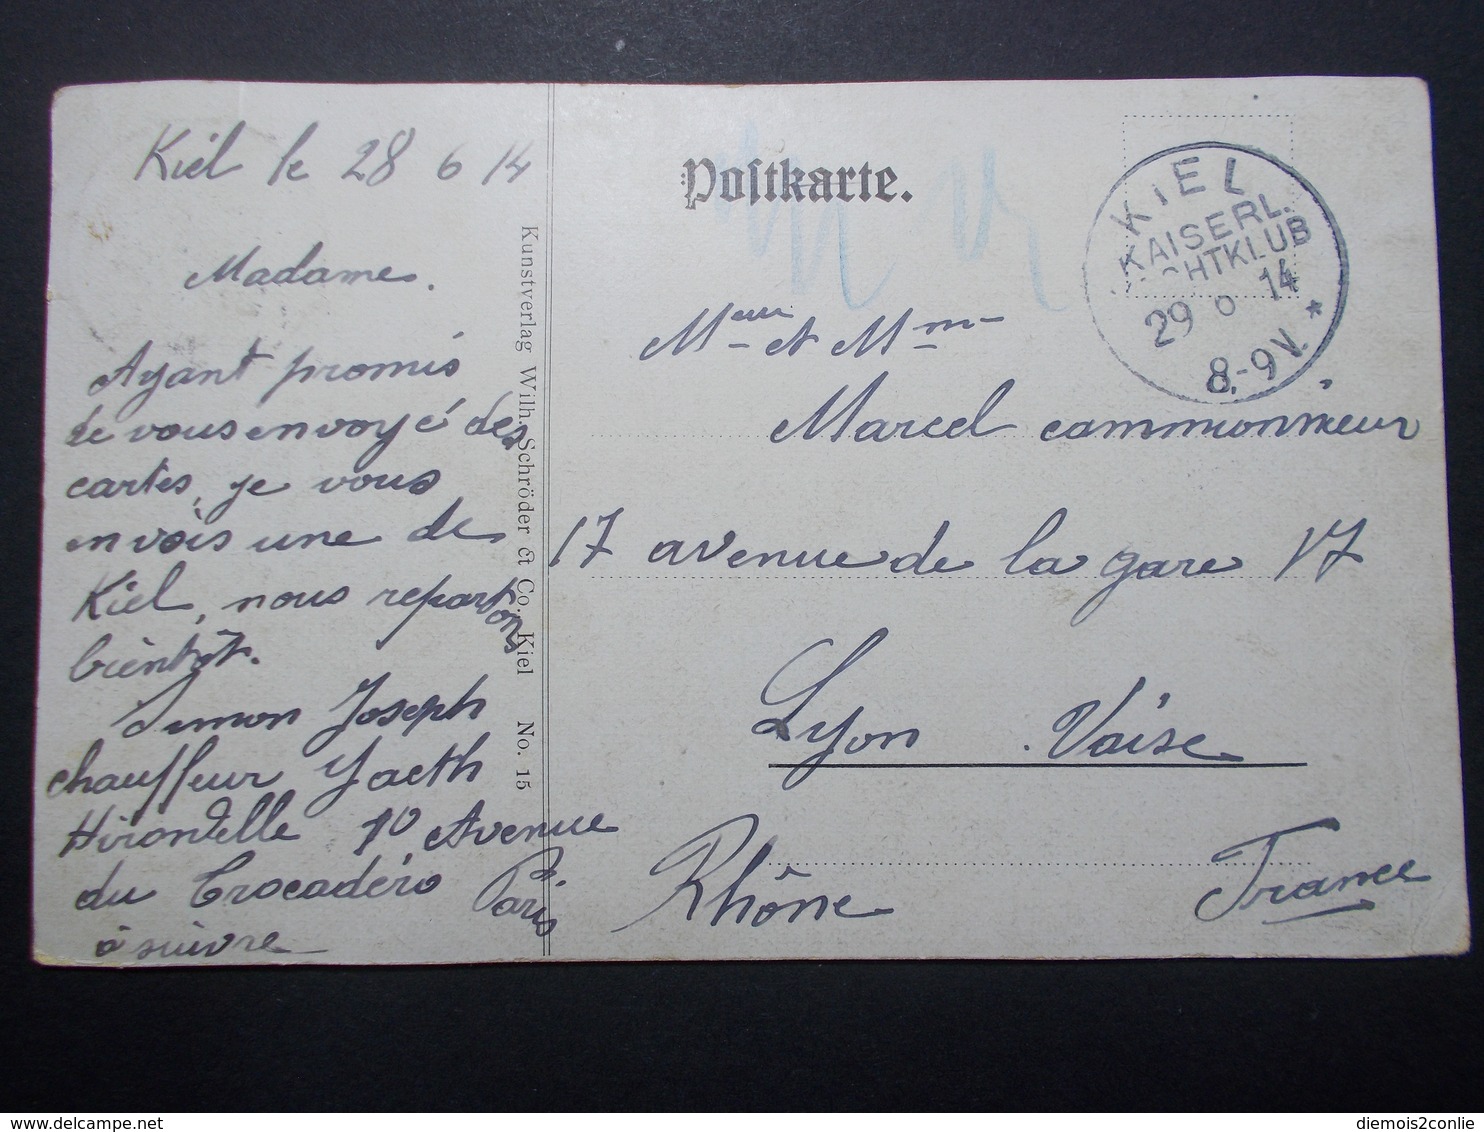 Kiel le 28 6 14
Madame.
Ayant promis
de vous envoyé des
cartes, je vous
envois une de
Kiel, nous repartons
bientôt.
Simon Joseph
chauffeur Yacth
Hirondelle 10 Avenue
du Trocadéro Paris
à suivre
Kunstverlag Wilh. Schröder & Co., Kiel No. 15
Postkarte.
KIEL
KAISERL.
CHTKLUB
29 6 14
8-9V.
Meur et Mme
Marcel commionnieur
17 avenue de la gare 17
Lyon Vaise
Rhône France
diemois2conlie